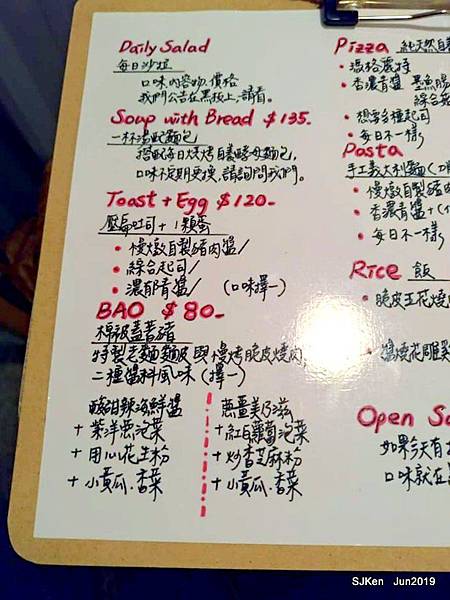 Daily Salad
每日沙拉
口味內容物.價格
我們公告在黑板上,請看。
Soup with Bread $135.
一杯湯配麵包
搭配每日烘烤自養酵母麵包,
口味不定期更換,請詢問我們。
Toast + Egg $120-
壓扁吐司 + 1顆蛋
• 慢燉自製豬肉醬/
• 綜合起司/
• 濃郁青醬/ (口味擇一)
BAO $80-
棉被蓋著豬
特製老麵麵皮與慢烤脆皮燒肉,
二種醬料風味(擇一)
酸甜辣海鮮醬
+ 紫洋蔥泡菜
+ 用心花生粉
+ 小黃瓜.香菜
蔥薑美乃滋
+ 紅白蘿蔔泡菜
+ 炒香芝麻粉
+ 小黃瓜.香菜
Pizza 純天然自
• 瑪格麗特
• 香濃青醬 墨魚腸
綜合菇
• 想念多種起司
• 每日不一樣
Pasta
手工義大利麵
• 慢燉自製豬肉
• 香濃青醬+
• 每日不一樣
Rice 飯
• 脆皮五花燒肉
• 爐燒花雕雞
Open S
如果今天有
口味就在
SJKen Jun2019